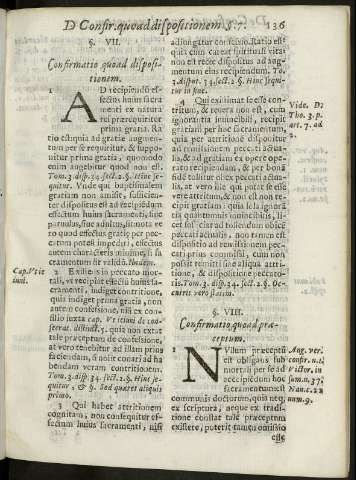 D Confir. quoad dispositionem §. 7. 136
§. VII.
Confirmatio quoad disposi-
tionem.
1 AD recipiendũ ef-
fectus huius sacra
menti ex natura
rei præcequiritur
prima gratia. Ra
tio estquia ad gratiæ augmen-
tum per se requiritur, & suppo-
nitur prima gratia, quomodo
enim augebitur quod non est.
Tom. 3. disp. 34. sect. 2. §. Hinc se-
quitur. Vnde qui baptismalem
gratiam non amisit, sufficien-
ter dispositus est ad recipiendũ
effectum huius sacramenti, siue
paruulus, siue adultus, si tota ve
ro quod effectus gratię per pec-
catum potest impediri, effectus
autem characteris minime, si sa
cramentum sit validũ. Ibidem.
Cap. Vt ie
iuni.
2 Existens in peccato mor-
tali, vt recipiat effectũ huius sa-
cramenti, indiget contritione,
quia indiget prima gratia, non
autem confessione, nisi ex con-
silio iuxta cap. Vt ieiuni de con-
secrat. distinct. 5. quia non exta-
tale præceptum de confessione,
at vero tenebitur ad illam prius
faciendam, si novit conari ad ha
bendam veram contritionem.
Tom. 3. disp. 34. sect. 2. §. Hinc se-
quitur, & §. Sed quæret aliquis
primo.
3 Qui habet attritionem
cognitam, non consequitur ef-
fectum huius sacramenti, nisi
adiungatur confessio. Ratio est
quia cum careat spirituali vita
non est recte dispositus ad aug-
mentum eius recipiendum. To.
3. disp. 34. sect. 2. §. Hinc sequi-
tur in fine.
Vide. D.
Tho. 3. p.
art. 7. ad
2.
4 Qui existimat se esse con-
tritum, & revera non est, cum
ignorantia inuincibili, recipit
gratiam per hoc sacramentum,
quia per attritionem disponitur
ad remissionem peccati actua-
lis, & ad gratiam ex opere ope-
rato recipiendam, & per bonã
fidẽ tollitur obex peccati actua-
lis, at vero ille qui putat se esse
vere attritum, & non est non re-
cipit gratiam, quia illa ignoran-
tia quantumuis inuincibilis, li-
cet possit excusare hominem ab
peccati actuali, non tamen est
dispositio ad remissionem pec-
cati prius commissi, cum non
possit remissio fine aliqua attri-
tione, & dispositione peccato-
ris. Tom. 3. disp. 34. sect. 2. §. De-
ueris vero statim.
§. VIII
Confirmatio, quoad præ-
ceptum.
Ang. ver.
confir. n. 6
Victor. in
sum. n. 37.
Nau. c. 22
num. 9.
1 NVllum præceptũ
est obligans sub
mortali per se ad
recipiẽdum hoc
sacramentum ita
communis doctorum, quia neq;
ex scriptura, neque ex tradi-
tione constat tale præceptum
existere, poterit tamen omissio
esse